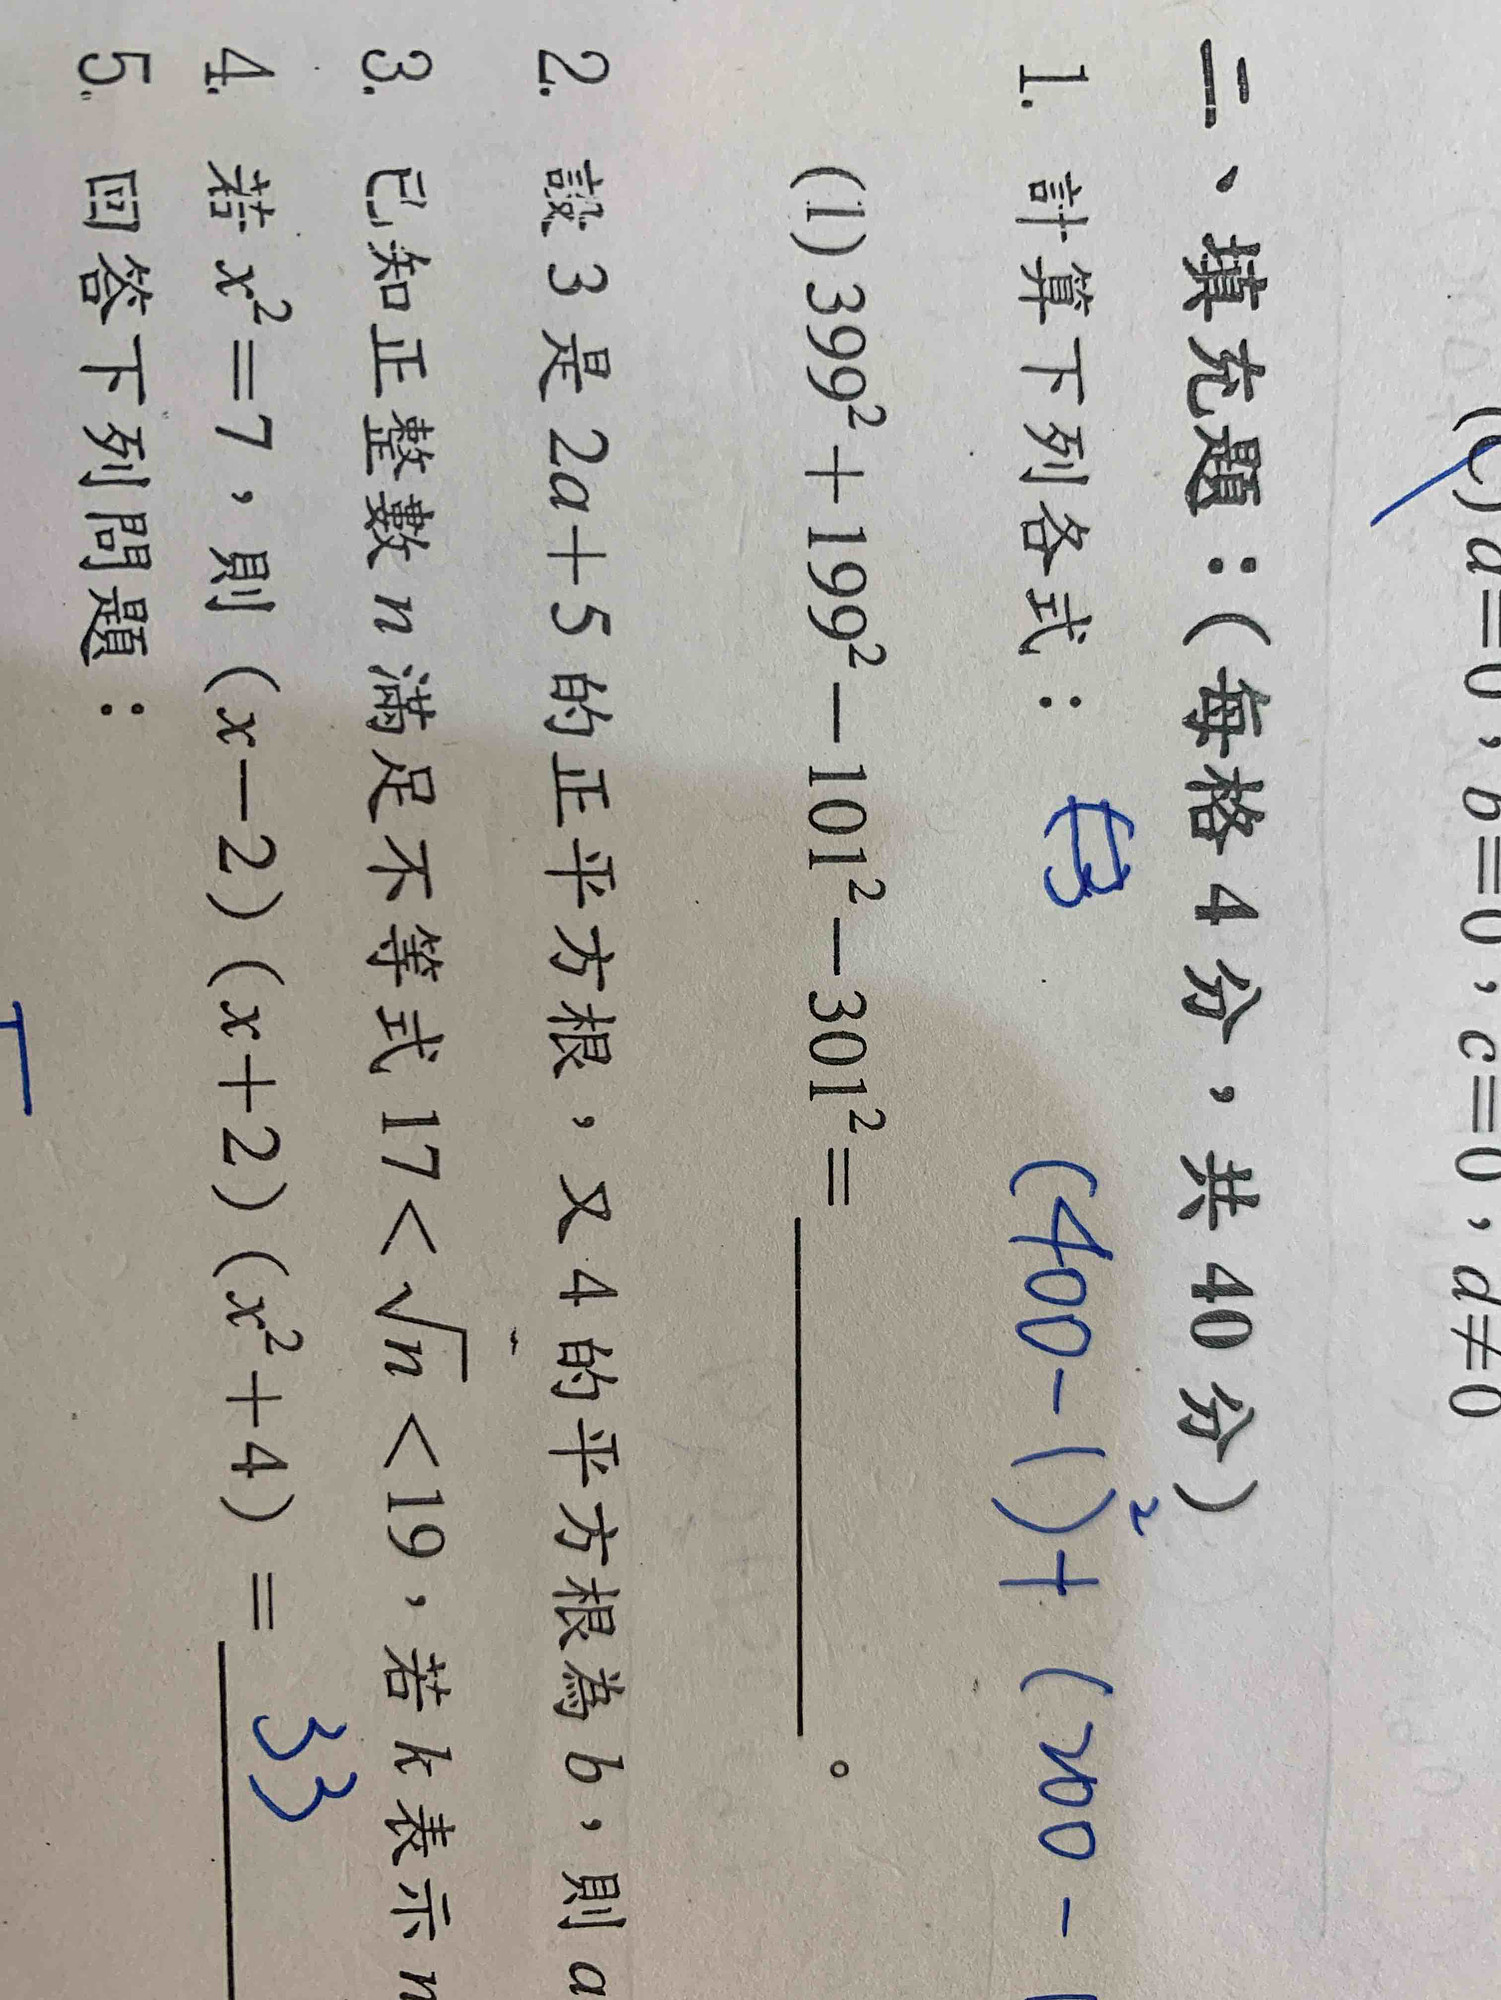 (C) a=0，b=0，c=0，d≠0
二、填充題：(每格4分，共40分)
1. 計算下列各式：
(400-1)²+(200-1
(1) 399²+199²-101²-301²=＿＿＿。
2. 設3是2a+5的正平方根，又4的平方根為b，則a
3. 已知正整數n滿足不等式17<√n<19，若k表示n
4. 若x²=7，則(x-2)(x+2)(x²+4)=33
5. 回答下列問題：